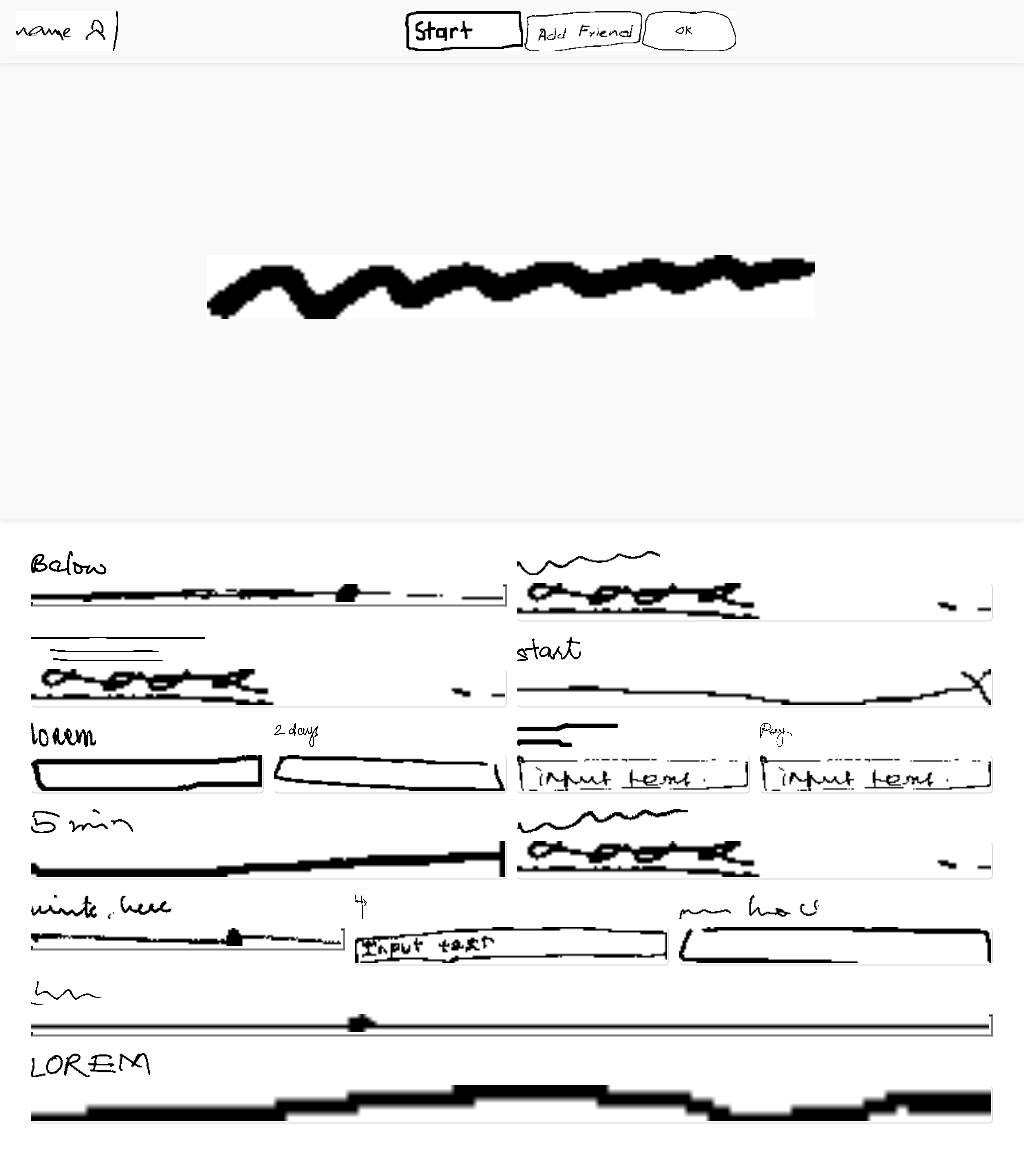 name
Start Add Friend OK
Below
start
lorem 2 days Pay
input text. input text.
5 min
write here
Input text
LOREM